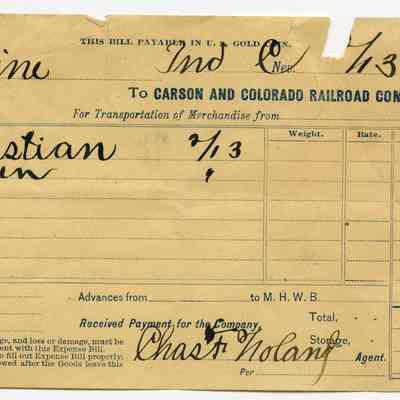 THIS BILL PAYABLE IN U. S. GOLD COIN.
ine Ind Co Nev. 2/13
To CARSON AND COLORADO RAILROAD COM
For Transportation of Merchandise from
Weight. Rate.
stian 2/13
en "
Advances from to M. H. W. B.
Received Payment for the Company, Total,
ge, and loss or damage, must be Storage,
ent with this Expense Bill.
o fill out Expense Bill properly; Chas F Nolan Agent.
owed after the Goods leave this
Per